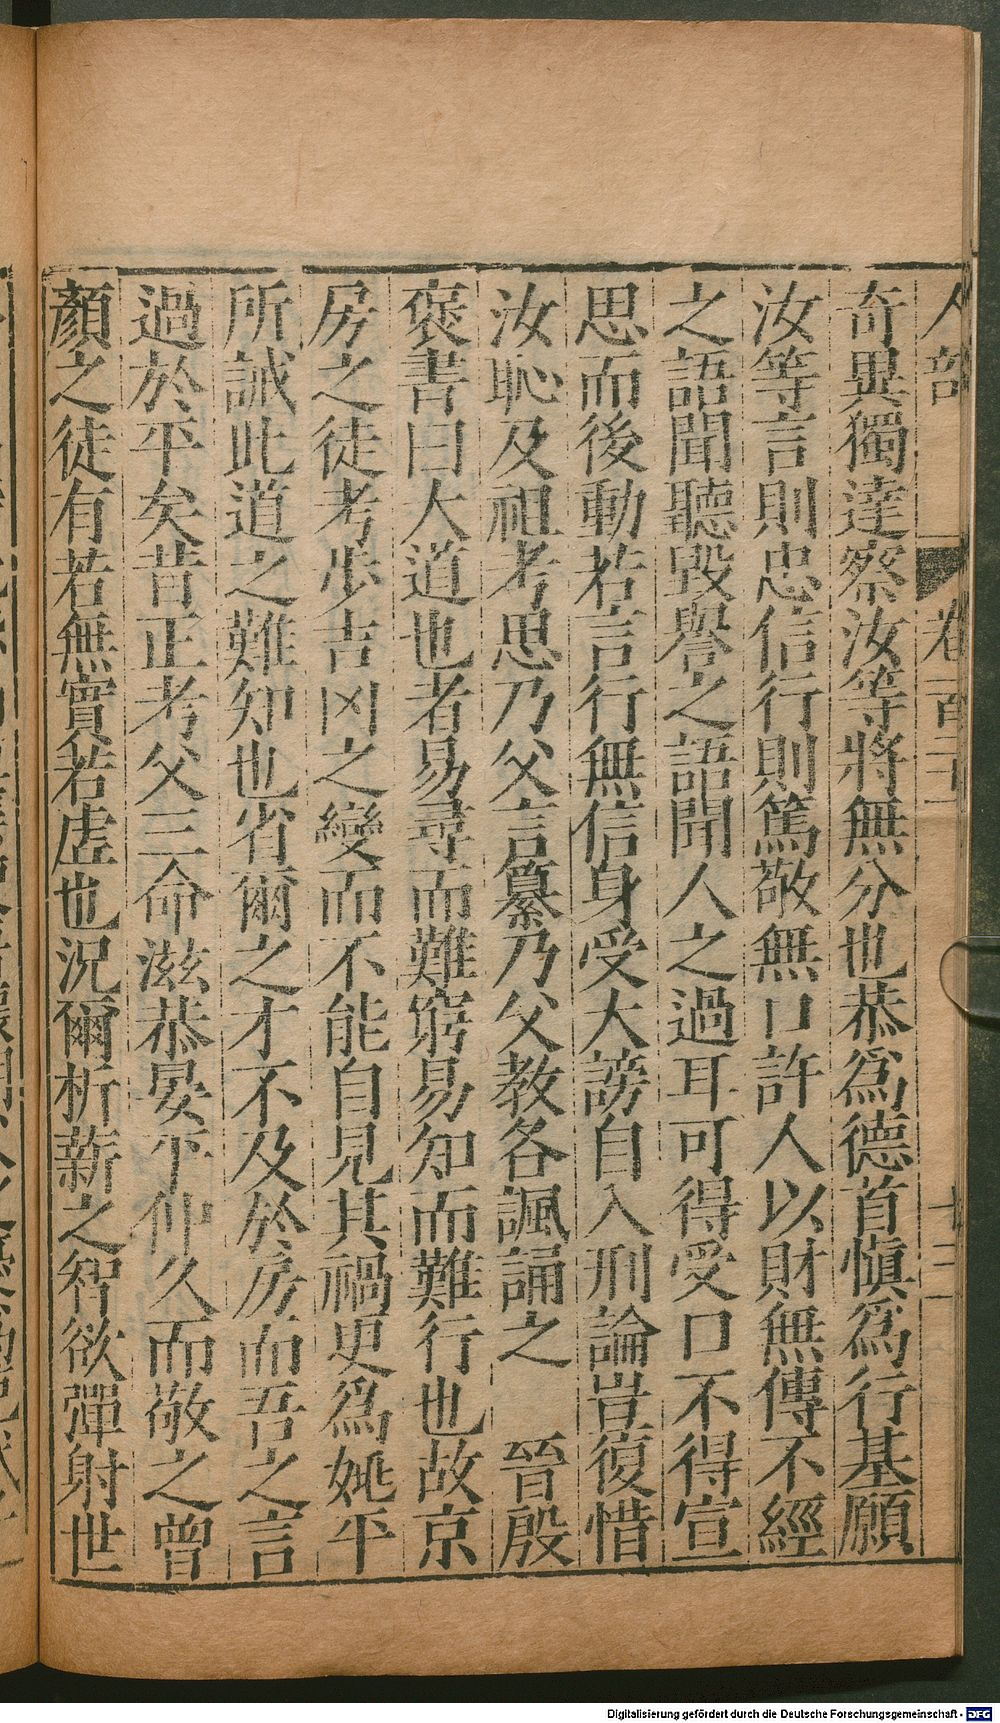 人部 卷一百二十一 十三
奇異獨達察汝等將無分也恭爲德首愼爲行基願
汝等言則忠信行則篤敬無口許人以財無傳不經
之語聞聽毀譽之語聞人之過耳可得受口不得宣
思而後動若言行無信身受大謗自入刑論豈復惜
汝恥及祖考思乃父言纂乃父教各諷誦之 晉殷
褒書曰大道也者易尋而難窮易知而難行也故京
房之徒考步吉凶之變而不能自見其禍吏爲姚平
所誡此道之難知也省爾之才不及於房而吾之言
過於平矣昔正考父三命滋恭晏平仲久而敬之曾
顏之徒有若無實若虛也況爾析薪之智欲彈射世
Digitalisierung gefördert durch die Deutsche Forschungsgemeinschaft - DFG